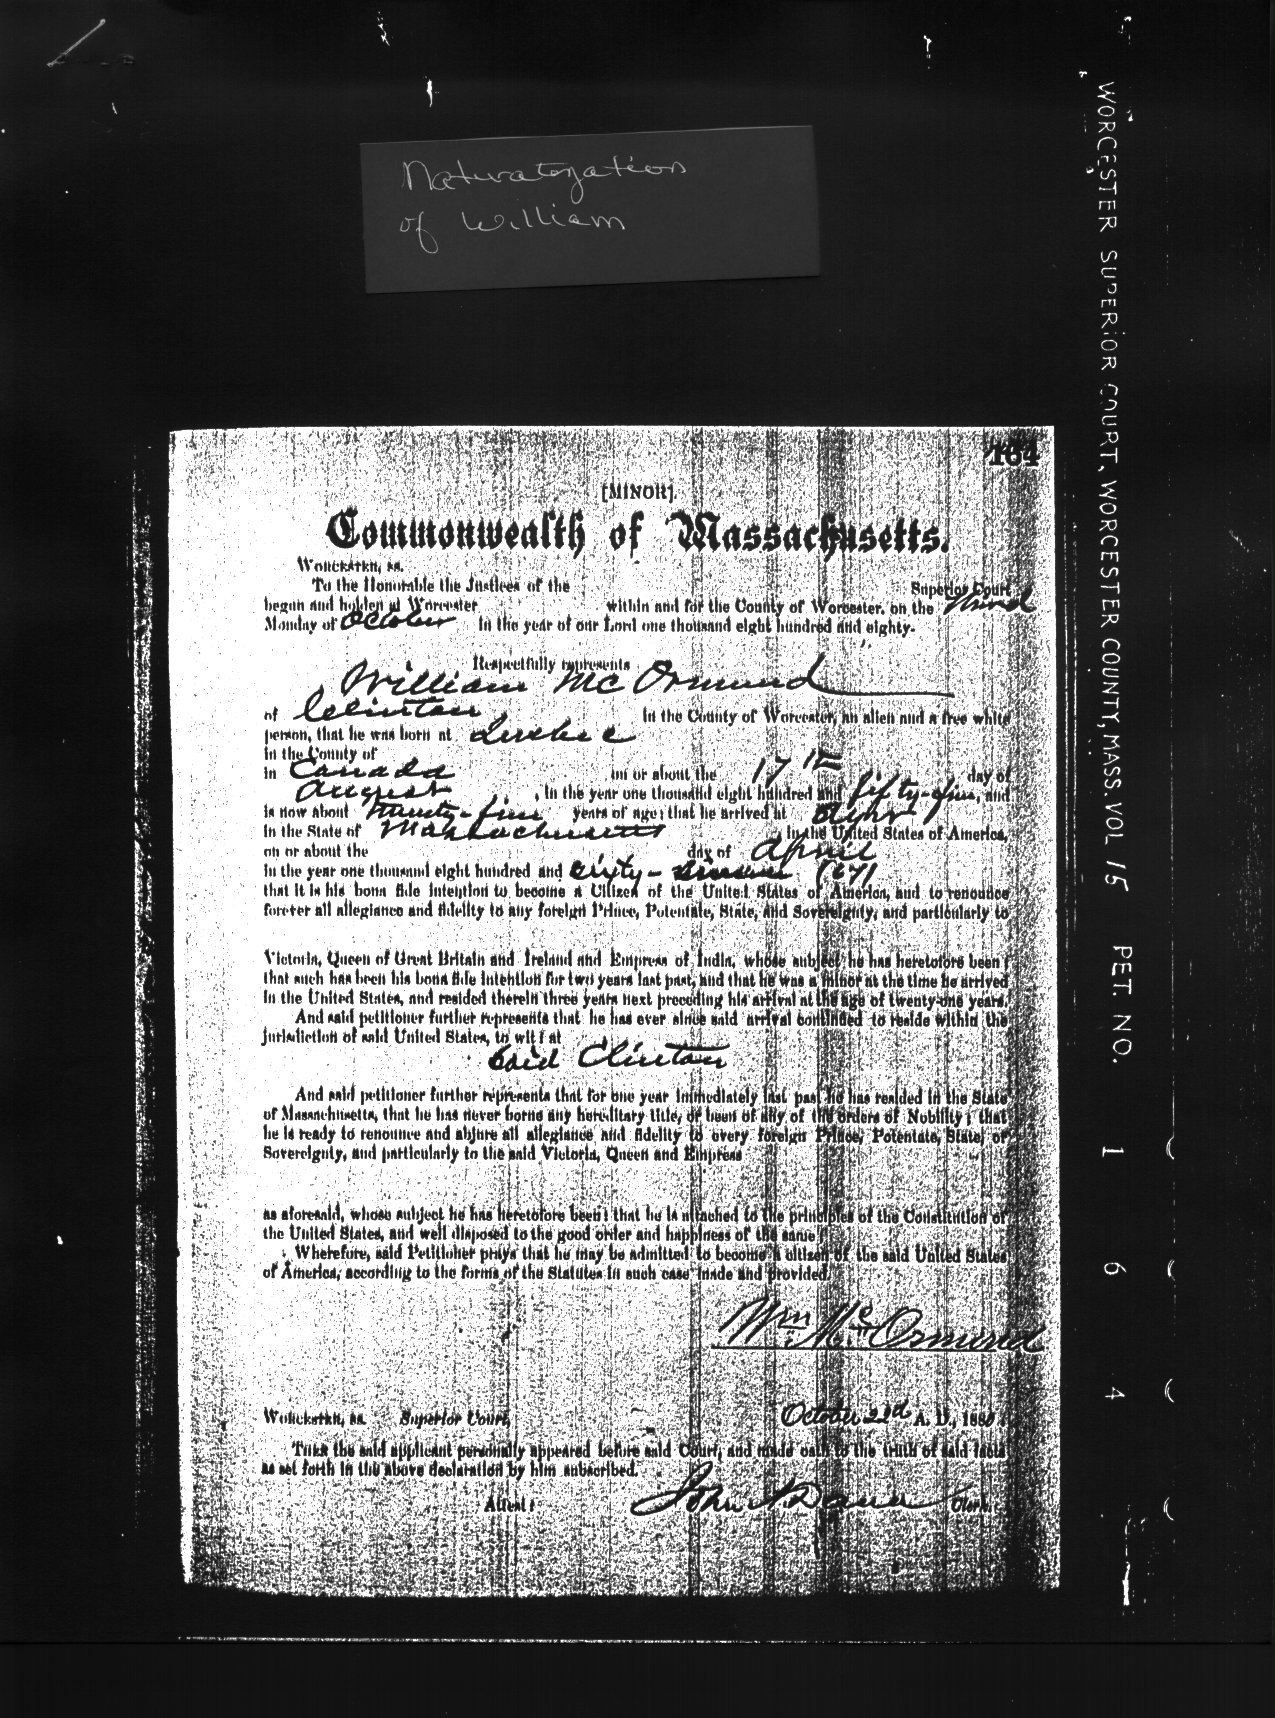 Naturatozation
of William
WORCESTER SUPERIOR COURT, WORCESTER COUNTY, MASS. VOL 15 PET. NO. 1 6 4
164
[MINOR].
Commonwealth of Massachusetts.
WORCESTER, ss.
To the Honorable the Justices of the Superior Court
begun and holden at Worcester within and for the County of Worcester, on the third
Monday of October In the year of our Lord one thousand eight hundred and eighty-
Respectfully represents
William McOrmond
of Clinton In the County of Worcester, an alien and a free white
person, that he was born at Quebec
In the County of
in Canada on or about the 17th day of
August, In the year one thousand eight hundred and fifty-five, and
is now about twenty-five years of age; that he arrived at
In the State of Massachusetts, In the United States of America,
on or about the day of April
In the year one thousand eight hundred and sixty- (1871
that it is his bona fide intention to become a Citizen of the United States of America, and to renounce
forever all allegiance and fidelity to any foreign Prince, Potentate, State, and Sovereignty, and particularly to
Victoria, Queen of Great Britain and Ireland and Empress of India, whose subject he has heretofore been;
that such has been his bona fide intention for two years last past, and that he was a minor at the time he arrived
in the United States, and resided therein three years next preceding his arrival at the age of twenty-one years.
And said petitioner further represents that he has ever since said arrival continued to reside within the
jurisdiction of said United States, to wit: at
said Clinton
And said petitioner further represents that for one year immediately last past he has resided in the State
of Massachusetts, that he has never borne any hereditary title, or been of any of the orders of Nobility; that
he is ready to renounce and abjure all allegiance and fidelity to every foreign Prince, Potentate, State, or
Sovereignty, and particularly to the said Victoria, Queen and Empress
as aforesaid, whose subject he has heretofore been; that he is attached to the principles of the Constitution of
the United States, and well disposed to the good order and happiness of the same.
Wherefore, said Petitioner prays that he may be admitted to become a citizen of the said United States
of America, according to the forms of the Statutes in such case made and provided.
Wm McOrmond
WORCESTER, ss. Superior Court, October 23d A. D., 1880.
THEN the said applicant personally appeared before said Court, and made oath to the truth of said facts
as set forth in the above declaration by him subscribed.
Attest: John A Dana Clerk.